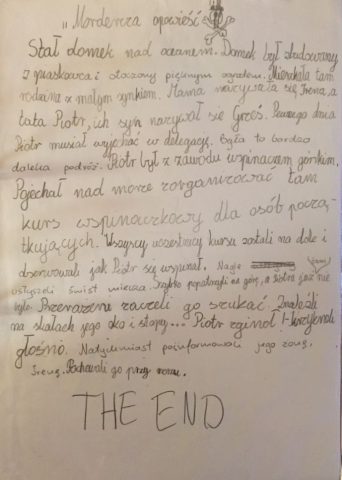 "Mordercza opowieść
Stał domek nad oceanem. Domek był zbudowany
z piaskowca i otoczony pięknym ogrodem. Mieszkała tam
rodzina z małym synkiem. Mama nazywała się Irena, a
tata Piotr, ich syn nazywał się Grześ. Pewnego dnia
Piotr musiał wyjechać w delegację. Była to bardzo
daleka podróż. Piotr był z zawodu wspinaczem górskim.
Pojechał nad morze zorganizować tam
kurs wspinaczkowy dla osób począ-
tkujących. Wszyscy uczestnicy kursu zostali na dole i
obserwowali jak Piotr się wspinał. Nagle
usłyszeli świst wiatru. Szybko popatrzyli na górę, a Piotra już nie
było. Przerażeni zaczeli go szukać. Znaleźli
na skałach jego oko i stopę... Piotr zginoł!- krzyknęli
głośno. Natychmiast poinformowali jego żonę,
Irenę. Pochowali go przy domu.
THE END